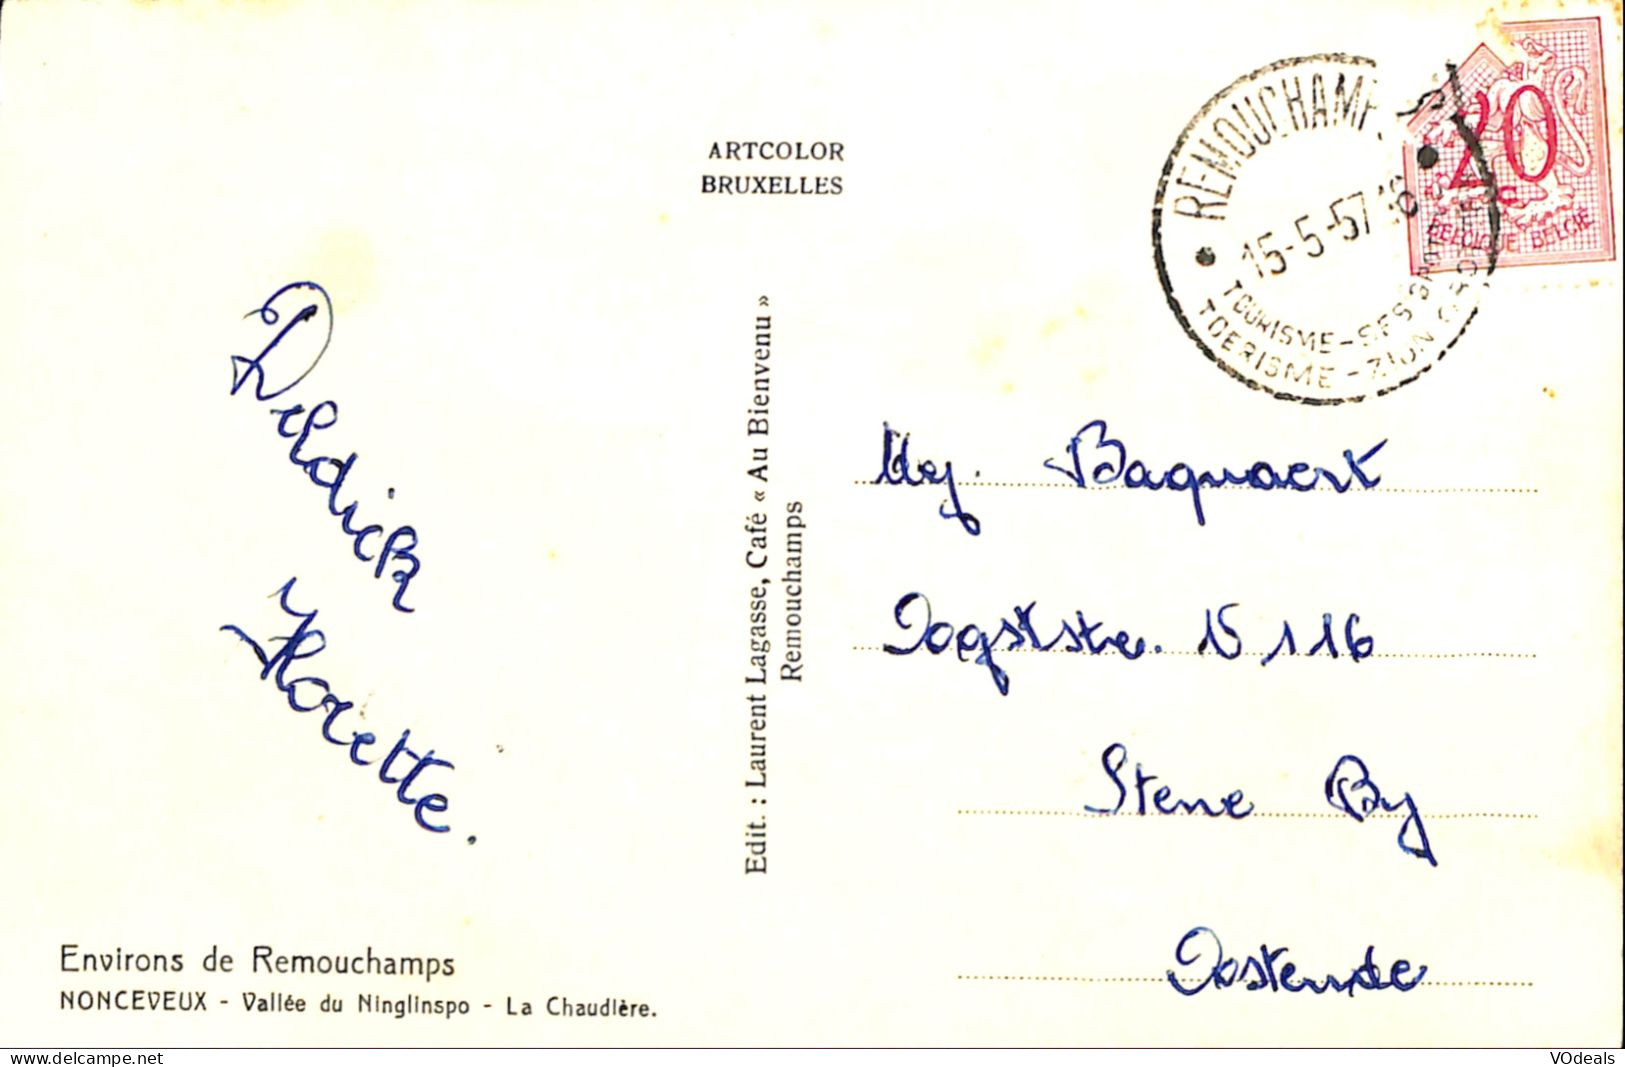 ARTCOLOR
BRUXELLES
REMOUCHAMPS
15-5-57 18
TOURISME-SES
TOERISME-ZIJN
20
c
BELGIQUE BELGIË
Edit. : Laurent Lagasse, Café « Au Bienvenu »
Remouchamps
Deldick
Florette.
Mej. Baquaert
Oogststr. N 116
Stene By
Oostende
Environs de Remouchamps
NONCEVEUX - Vallée du Ninglinspo - La Chaudière.
delcampe.net
VOdeals